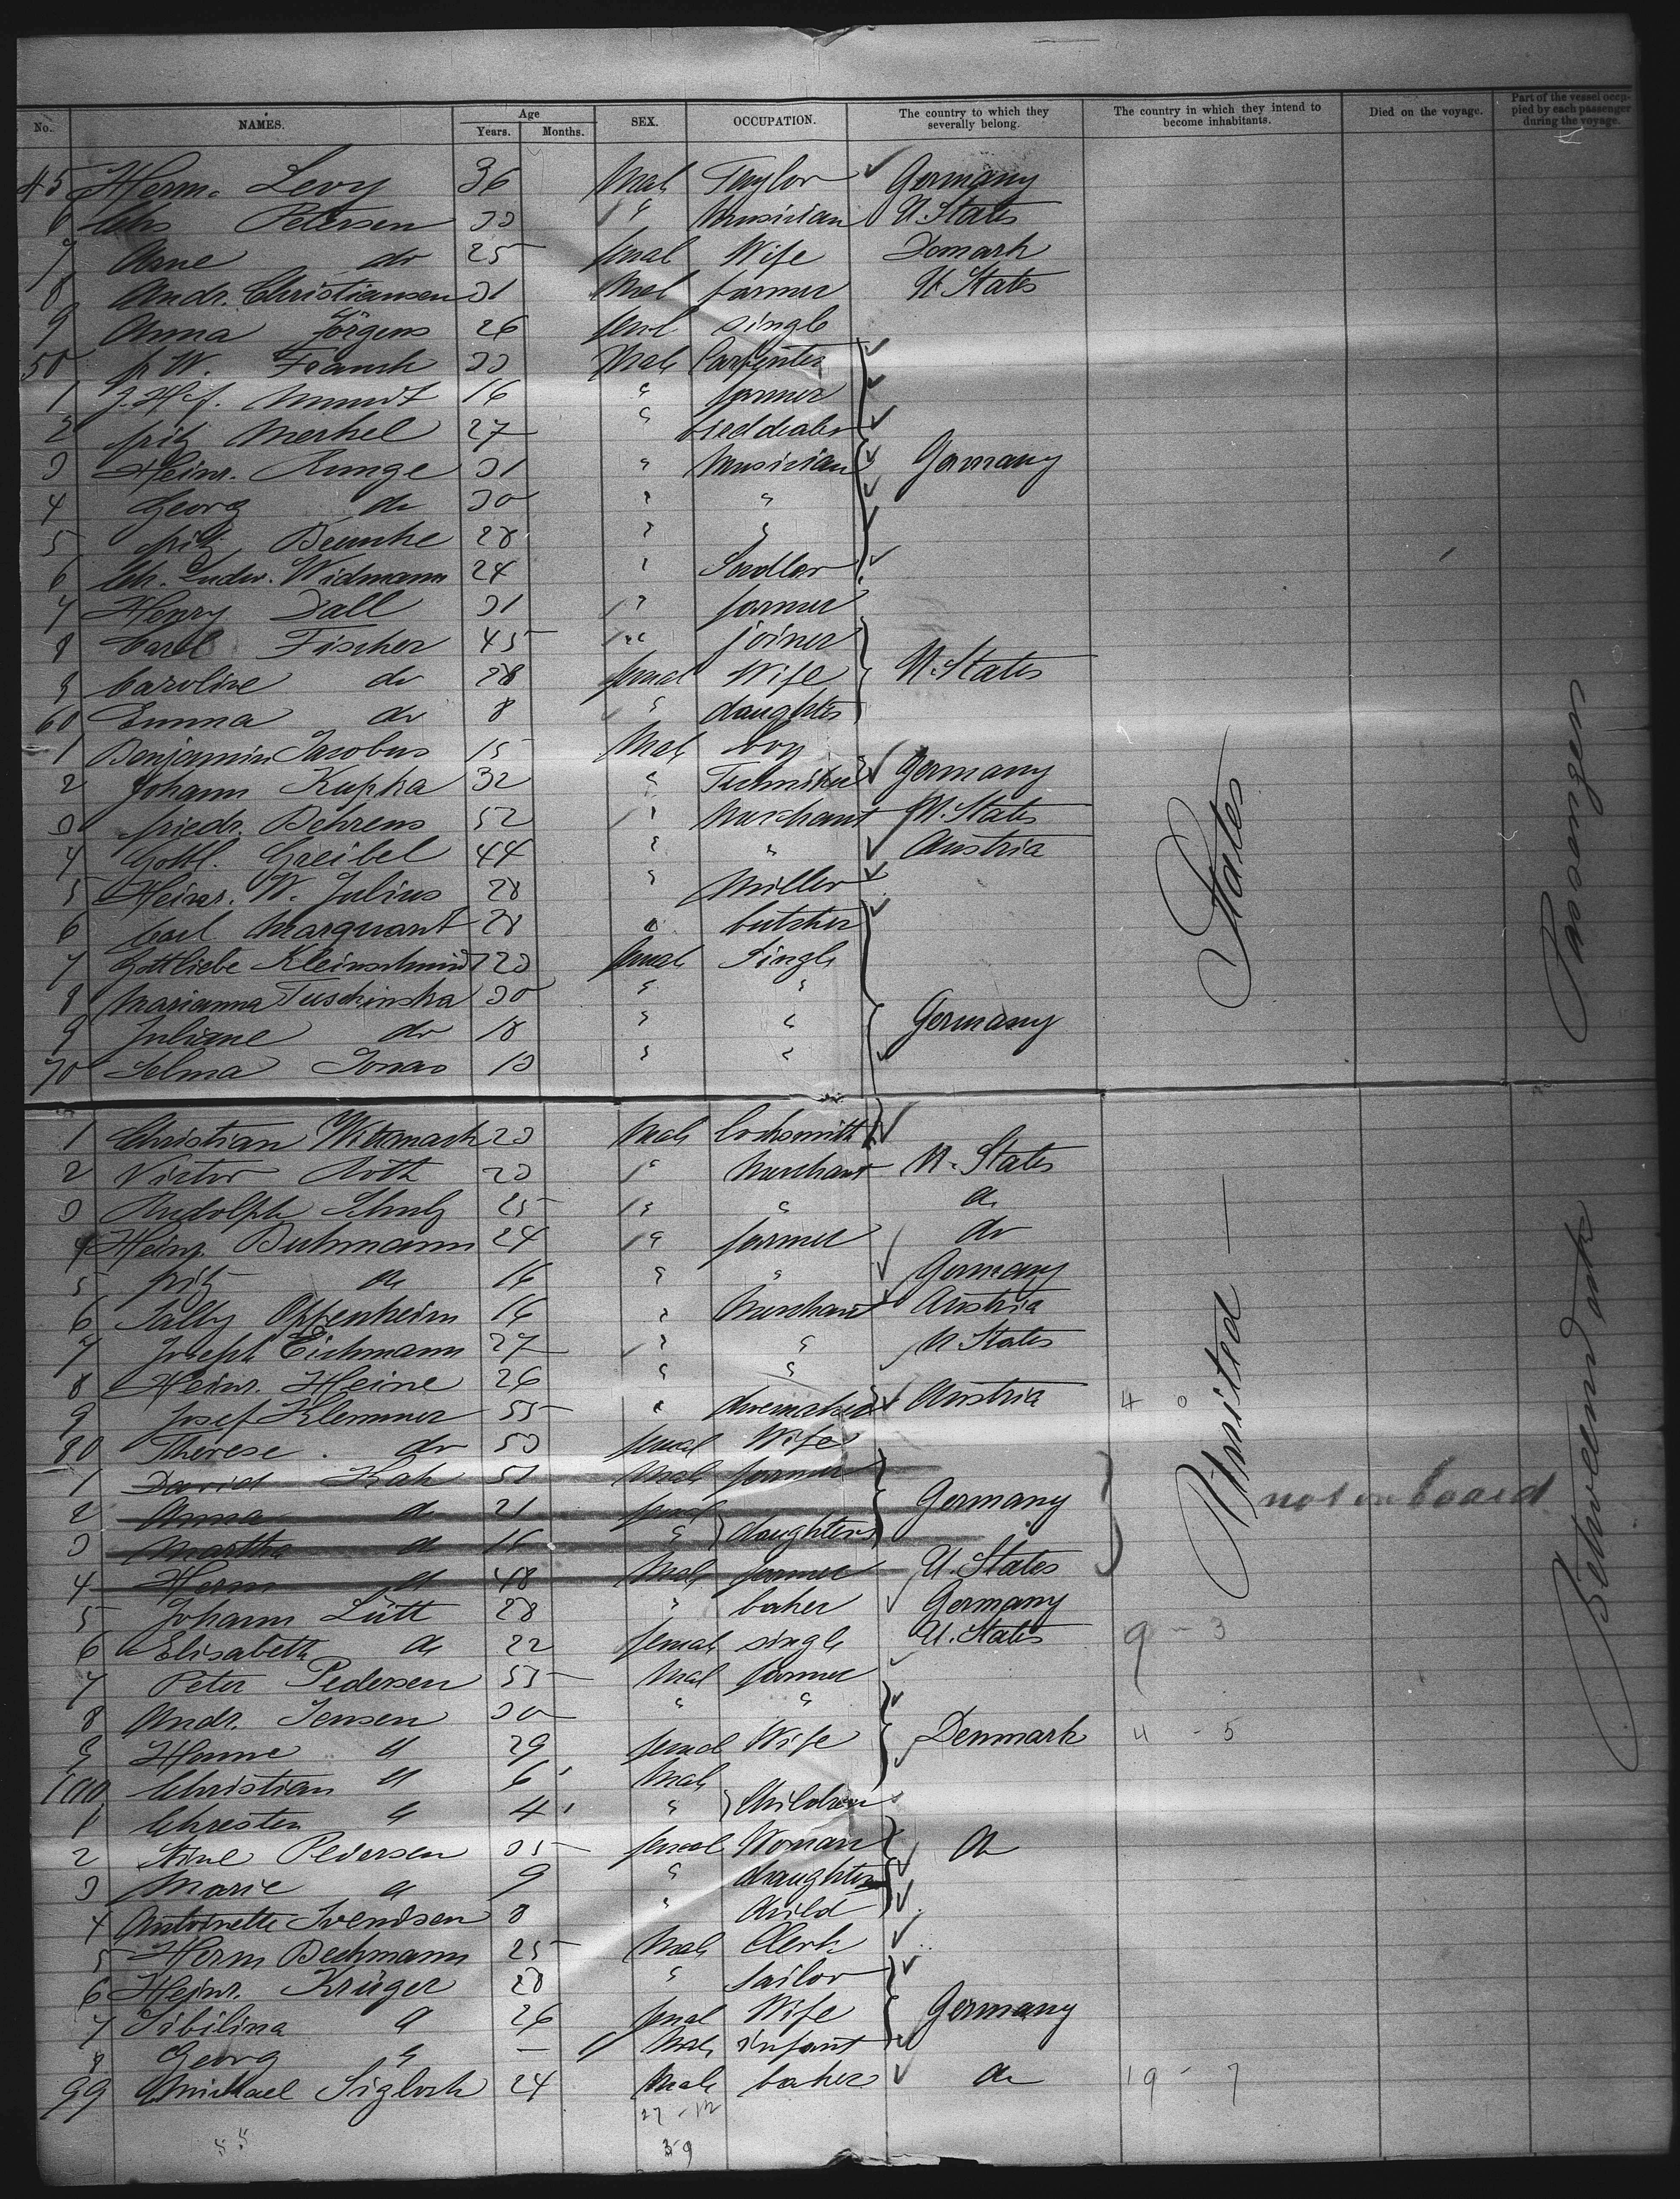 No. NAMES. Age Years. Months. SEX. OCCUPATION. The country to which they severally belong. The country in which they intend to become inhabitants. Died on the voyage. Part of the vessel occupied by each passenger during the voyage.
45 Herm. Levy 36 Male Taylor Germany
6 Chs Petersen 33 " Musician U. States
7 Ane do 25 femal Wife Denmark
8 Andr. Christiansen 31 Mal farmer U. States
9 Anna Jörgens 26 feml single
50 fr. W. Franck 33 Male Carpenter
1 J. H. f. Mundt 16 " farmer
2 fritz Merkel 27 " birddealer
3 Heinr. Runge 31 " Musician Germany
4 Georg do 30 " "
5 fritz 28 " "
6 Chr. Ludw. Widmann 24 " Sadler
7 Henry Dall 31 " farmer
8 Carl Fischer 45 " joiner
9 Caroline do 28 femal Wife U. States
60 Emma do 8 " daughter
1 Benjamin Jacobus 15 Male boy
2 Johann Kupka 32 " Techniker Germany
3 friedr. Behrens 52 " Marchant U. States
4 Gottl. Greibel 44 " " Austria
5 Heinr. W. Julius 28 " Miller
6 Carl Marquant 28 " butcher
7 Gottliebe Kleinschmidt 23 female Single
8 Marianna Tuschinska 30 " "
9 Juliane do 18 " " Germany
70 Selma Jonas 13 " "
1 Christian Wittmack 23 Male locksmith
2 Victor Roth 23 " Marchant U. States
3 Rudolph Schulz 25 " " do
4 Heinr. Buhmann 24 " farmer do
5 fritz do 16 " " Germany
6 Sally Oppenheim 16 " Marchant Austria
7 Joseph Eichmann 27 " " U States
8 Heinr. Heine 26 " "
9 Josef Klemmer 55 " Austria 4 0
80 Therese do 53 femal Wife
1 David Kah 51 Male farmer
2 Anna do 21 femal Germany not on board
3 Martha do 16 " daughters
4 Herm do 48 Male farmer U. States
5 Johann Lütt 28 " baker Germany
6 Elisabeth do 22 female single U. States 9 - 3
7 Peter Pedersen 55 Mal farmer
8 Andr. Jensen 30 " "
9 Hanne do 29 femal Wife Denmark 4 - 5
100 Christian do 6 Male
1 Christen do 4 " Children
2 Stine Pedersen 35 femal Woman do
3 Marie do 9 " daughter
4 Antoinette Svendsen 8 " child
5 Herm Bechmann 25 Male Clerk
6 Heinr. Krüger 28 " sailor
7 Sibilina do 26 femal Wife Germany
8 Georg " — Male infant
99 Michael Sigloch 24 Male baker do 19 - 7
27 - 12
39
United States
Betweendecks Passengers